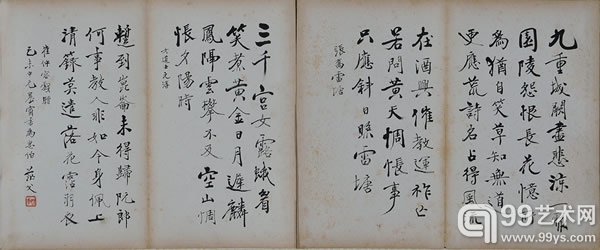 九重城闕盡悲涼一聚
園陵怨恨長花憶所
為猶自笑草知無道
更應荒詩名占得風流
在酒興催教運祚亡
若問皇天惆悵事
只應斜日照雷塘
雷塘
三千宮女露蛾眉
笑煮黃金日月遲麟
鳳隔雲攀不及空山惆
悵夕陽時
女道士元淳
暫到崑崙未得歸阮郎
何事教人非如今身佩上
清籙莫遣落花霑羽衣
崔仲容贈
99艺术网
www.99ys.com